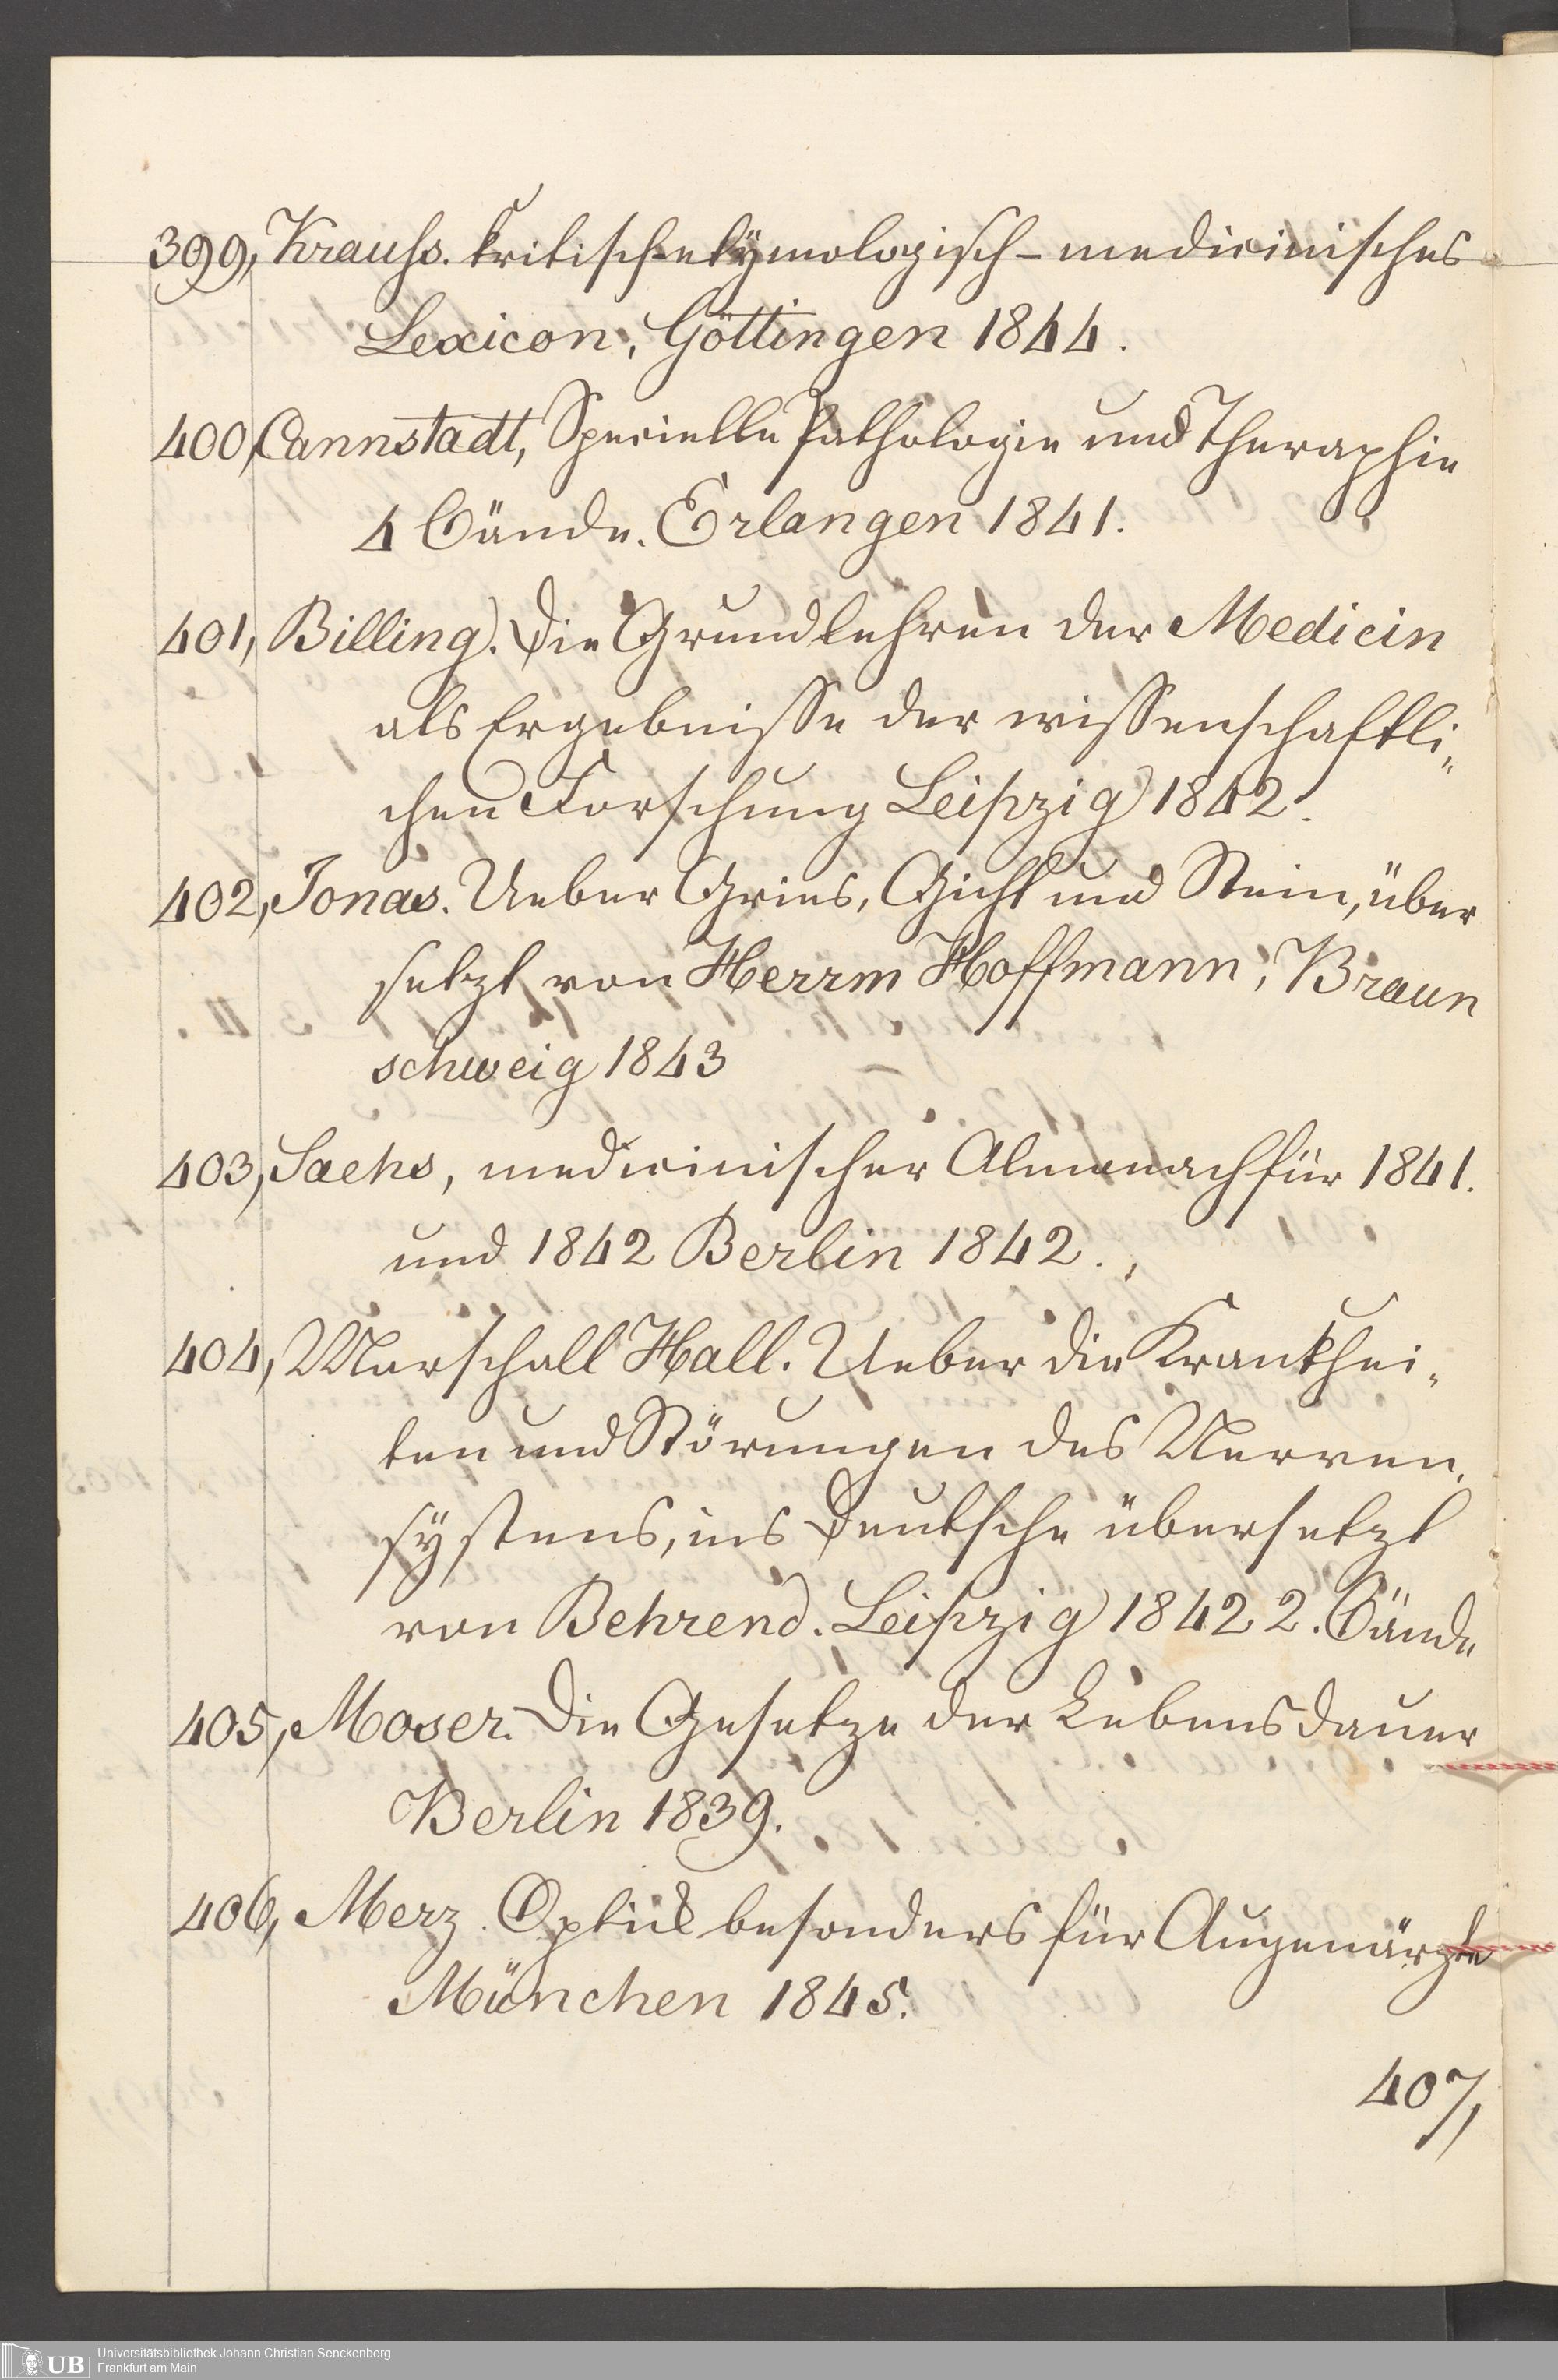 399, Krauss. kritisch-etÿmologisch-medicinisches
Lexicon, Göttingen 1844.
400, Cannstadt, Specielle Pathologie und Theraphie
4 Bände. Erlangen 1841.
401, Billing. Die Grundlehren der Medicin
als Ergebnisse der wissenschaftli„
chen Forschung Leipzig 1842.
402, Jonas. Ueber Gries, Gicht und Stein, über
setzt von Herrm Hoffmann, Braun
schweig 1843
403, Sachs, medicinischer Almanach für 1841.
und 1842 Berlin 1842.
404, Marschall Hall. Ueber die Krankhei„
ten und Störungen des Nerven„
sÿstems, ins Deutsche übersetzt
von Behrend. Leipzig 1842 2. Bände
405, Moser. Die Gesetze der Lebensdauer
Berlin 1839.
406, Merz. Optick besonders für Augenärzte
München 1845.
407,
UB Universitätsbibliothek Johann Christian Senckenberg
Frankfurt am Main